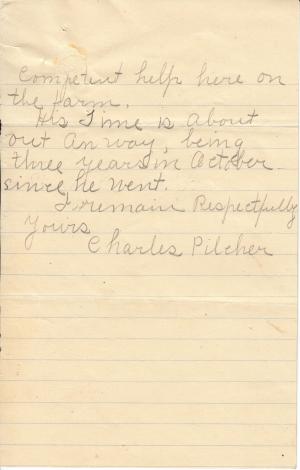 Competent help here on
the farm.
His Time is About
out Anway, being
three years in October
since he went.
I remain Respectfully
Yours
Charles Pilcher